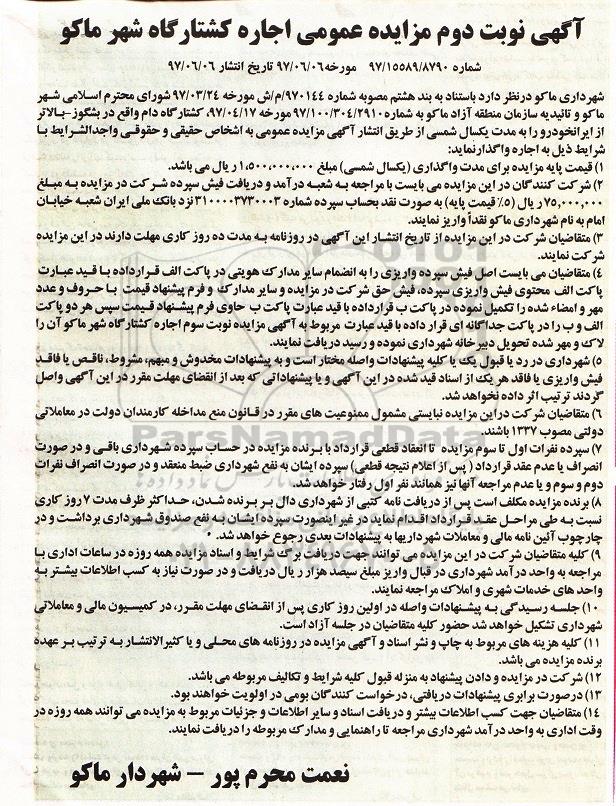 آگهی نوبت دوم مزایده عمومی اجاره کشتارگاه شهر ماکو
شماره ۹۷/۱۵۵۸۹/۸۷۹۰ مورخه ۹۷/۰۶/۰۶ تاریخ انتشار ۹۷/۰۶/۰۶
شهرداری ماکو درنظر دارد باستناد به بند هشتم مصوبه شماره ۹۷۰۱۴۴/م/ش مورخه ۹۷/۰۳/۲۴ شورای محترم اسلامی شهر
ماکو و تائیدیه سازمان منطقه آزاد ماکو به شماره ۹۷/۱۰۰/۳۰۴/۲۹۱۰ مورخه ۹۷/۰۴/۱۷، کشتارگاه دام واقع در بشگوز-بالاتر
از ایرانخودرو را به مدت یکسال شمسی از طریق انتشار آگهی مزایده عمومی به اشخاص حقیقی و حقوقی واجدالشرایط با
شرایط ذیل به اجاره واگذارنماید:
۱) قیمت پایه مزایده برای مدت واگذاری (یکسال شمسی) مبلغ ۱,۵۰۰,۰۰۰,۰۰۰ ریال می باشد.
۲) شرکت کنندگان در این مزایده می بایست با مراجعه به شعبه درآمد و دریافت فیش سپرده شرکت در مزایده به مبلغ
۷۵,۰۰۰,۰۰۰ ریال (۵٪ قیمت پایه) به صورت نقد بحساب سپرده شماره ۳۱۰۰۰۰۳۷۳۰۰۰۳ نزد بانک ملی ایران شعبه خیابان
امام به نام شهرداری ماکو نقداً واریز نمایند.
۳) متقاضیان شرکت در این مزایده از تاریخ انتشار این آگهی در روزنامه به مدت ده روز کاری مهلت دارند در این مزایده
شرکت نمایند.
۴) متقاضیان می بایست اصل فیش سپرده واریزی را به انضمام سایر مدارک هویتی در پاکت الف قرارداده با قید عبارت
پاکت الف محتوی فیش واریزی سپرده، فیش حق شرکت در مزایده و سایر مدارک و فرم پیشنهاد قیمت با حروف و عدد
مهر و امضاء شده را تکمیل نموده در پاکت ب قرارداده با قید عبارت پاکت ب حاوی فرم پیشنهاد قیمت سپس هر دو پاکت
الف و ب را در پاکت جداگانه ای قرار داده با قید عبارت مربوط به آگهی مزایده نوبت سوم اجاره کشتارگاه شهر ماکو آن را
لاک و مهر شده تحویل دبیرخانه شهرداری نموده و رسید دریافت نمایند.
۵) شهرداری در رد یا قبول یک یا کلیه پیشنهادات واصله مختار است و به پیشنهادات مخدوش و مبهم، مشروط، ناقص یا فاقد
فیش واریزی یا فاقد هر یک از اسناد قید شده در این آگهی و یا پیشنهاداتی که بعد از انقضای مهلت مقرر در این آگهی واصل
گردند ترتیب اثر داده نخواهد شد.
۶) متقاضیان شرکت دراین مزایده نبایستی مشمول ممنوعیت های مقرر در قانون منع مداخله کارمندان دولت در معاملاتی
دولتی مصوب ۱۳۳۷ باشند.
۷) سپرده نفرات اول تا سوم مزایده تا انعقاد قطعی قرارداد با برنده مزایده در حساب سپرده شهرداری باقی و در صورت
انصراف یا عدم عقد قرارداد ( پس از اعلام نتیجه قطعی) سپرده ایشان به نفع شهرداری ضبط منعقد و در صورت انصراف نفرات
دوم و سوم و یا عدم مراجعه آنها نیز همانند نفر اول رفتار خواهد شد.
۸) برنده مزایده مکلف است پس از دریافت نامه کتبی از شهرداری دال بر برنده شدن، حداکثر ظرف مدت ۷ روز کاری
نسبت به طی مراحل عقد قرارداد اقدام نماید در غیر اینصورت سپرده ایشان به نفع صندوق شهرداری برداشت و در
چارچوب آئین نامه مالی و معاملات شهرداریها به پیشنهادات بعدی رجوع خواهد شد.
۹) کلیه متقاضیان شرکت در این مزایده می توانند جهت دریافت برگ شرایط و اسناد مزایده همه روزه در ساعات اداری با
مراجعه به واحد درآمد شهرداری در قبال واریز مبلغ سیصد هزار ریال دریافت و در صورت نیاز به کسب اطلاعات بیشتر به
واحد های خدمات شهری و املاک مراجعه نمایند.
۱۰) جلسه رسیدگی به پیشنهادات واصله در اولین روز کاری پس از انقضای مهلت مقرر، در کمیسیون مالی و معاملاتی
شهرداری تشکیل خواهد شد حضور کلیه متقاضیان در جلسه آزاد است.
۱۱) کلیه هزینه های مربوط به چاپ و نشر اسناد و آگهی مزایده در روزنامه های محلی و یا کثیرالانتشار به ترتیب بر عهده
برنده مزایده می باشد.
۱۲) شرکت در مزایده و دادن پیشنهاد به منزله قبول کلیه شرایط و تکالیف مربوطه می باشد.
۱۳) درصورت برابری پیشنهادات دریافتی، درخواست کنندگان بومی در اولویت خواهند بود.
۱۴) متقاضیان جهت کسب اطلاعات بیشتر و دریافت اسناد و سایر اطلاعات و جزئیات مربوط به مزایده می توانند همه روزه در
وقت اداری به واحد درآمد شهرداری مراجعه تا راهنمایی و مدارک مربوطه را دریافت نمایند.
نعمت محرم پور – شهردار ماکو
ParsNamadData